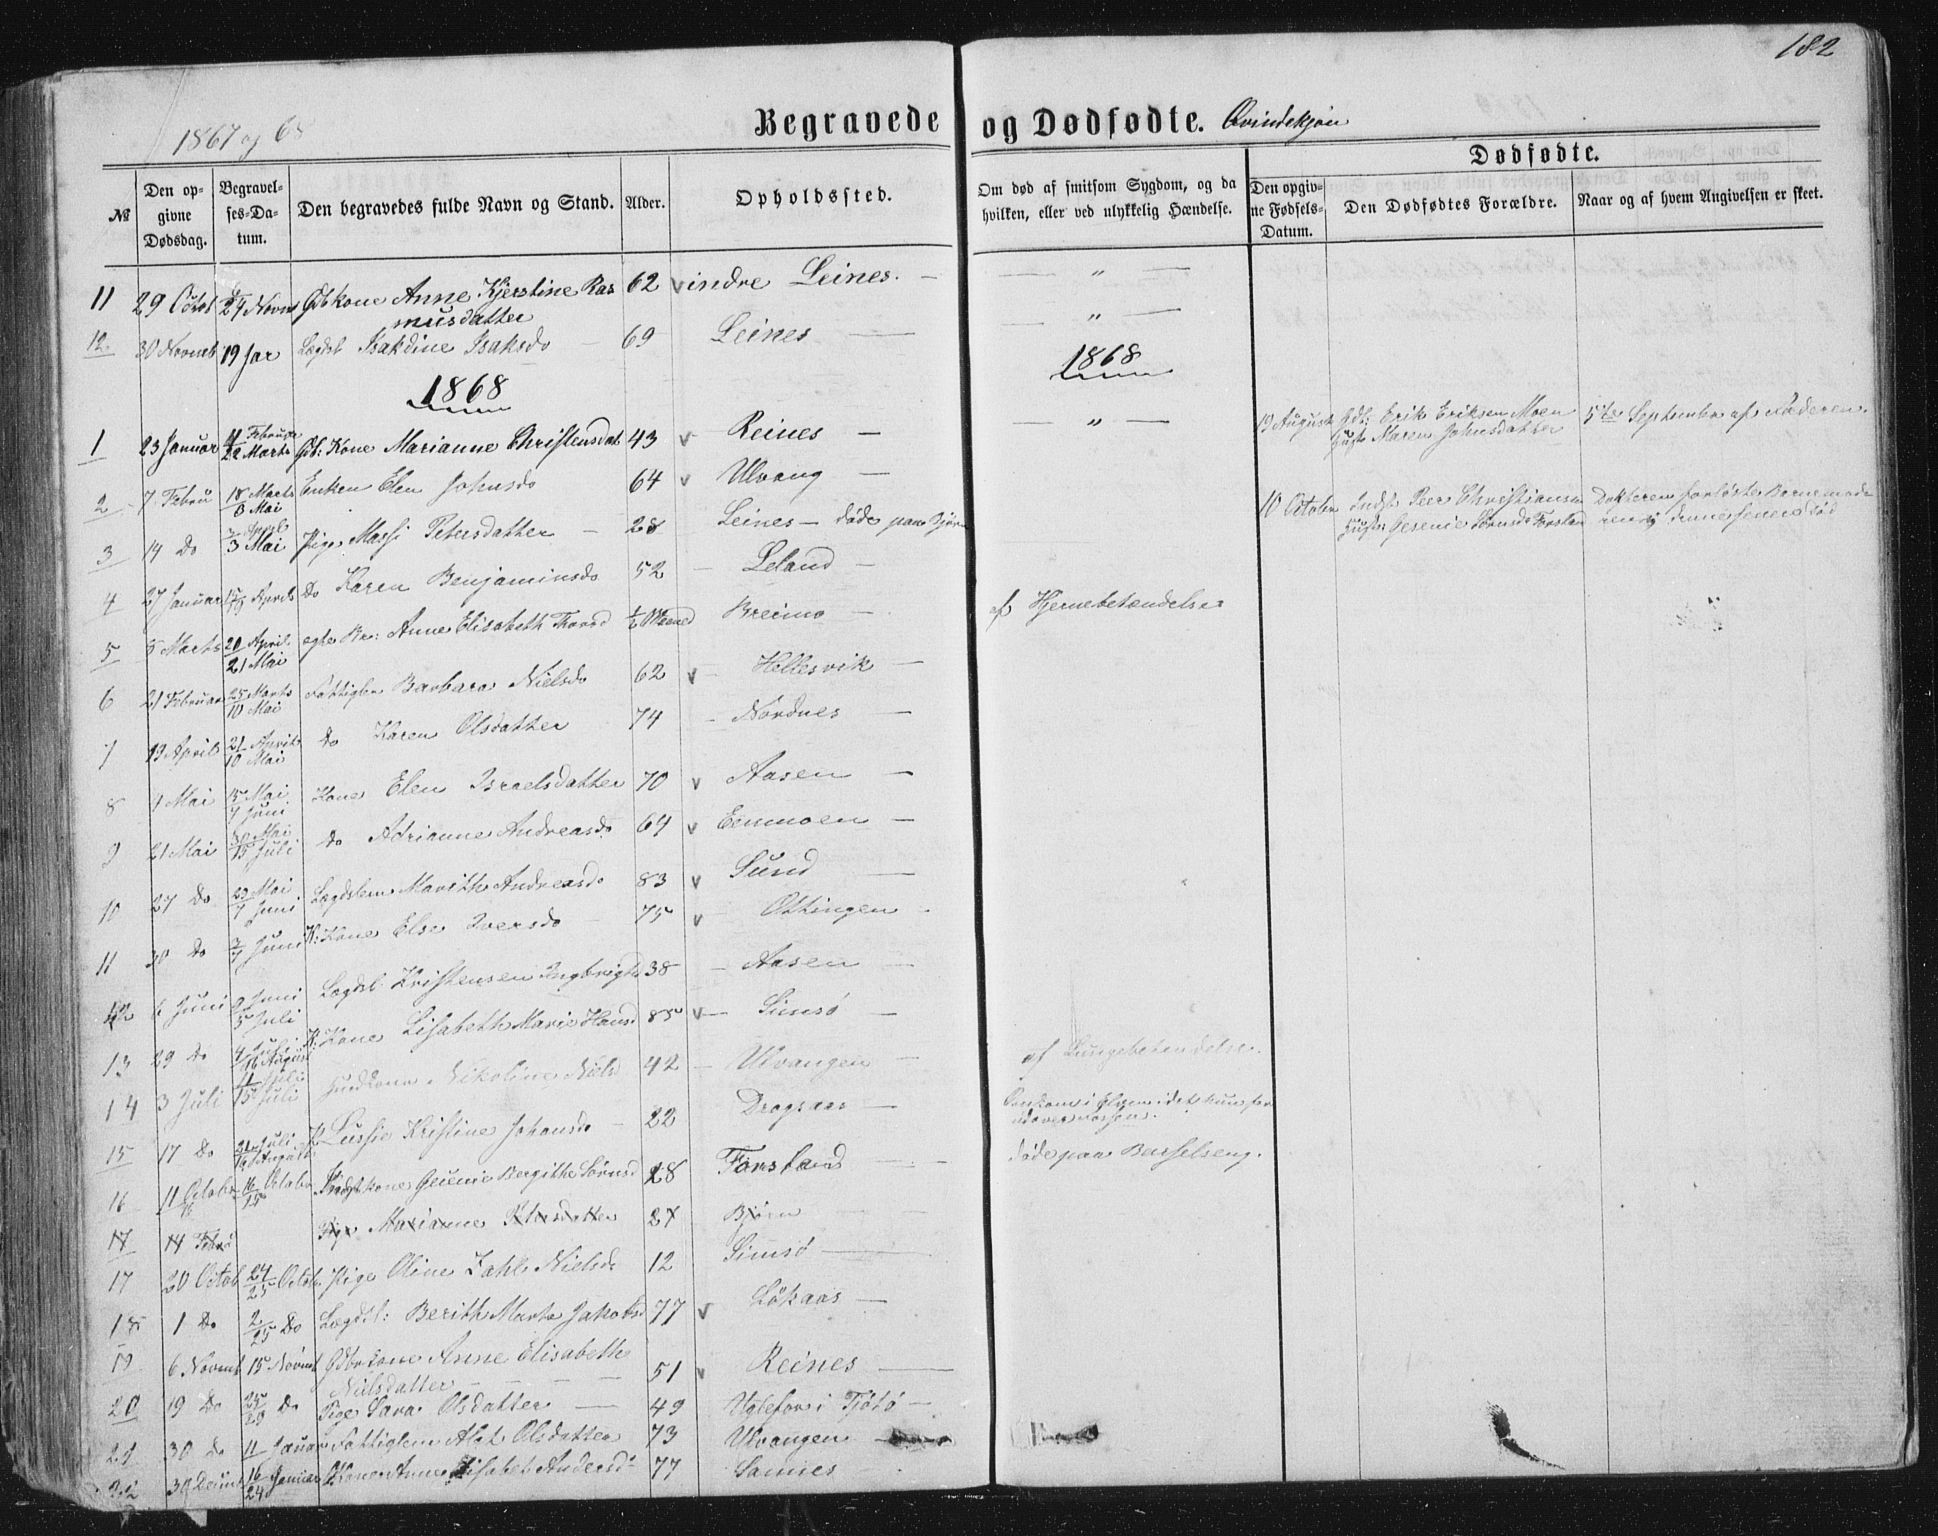 182
1867 og 68
Begravede og Dødfødte. Qvindekjøn
Dødfødte.
№ Den opgivne Dødsdag. Begravelses-Datum. Den begravedes fulde Navn og Stand. Alder. Opholdssted. Om død af smitsom Sygdom, og da hvilken, eller ved ulykkelig Hændelse. Den opgivne Fødsels-Datum. Den Dødfødtes Forældre. Naar og af hvem Angivelsen er skeet.
11 29 Octob 24 Novm Gdbkone Anne Kjerstine Rasmusdatter 62 v indre Leines. — — " —
12. 30 Novmb 19 Jar Lægdsl Isakdine Isaksdo — 69 Leines — — " —
1868 1868
1 23 Januar 4 Februar 22 Marts Gb: Kone Marianne Christensdat 43 v Reines — — " — 19 August Gdb: Erik Eriksen Moen Hust Maren Johnsdatter 5te September af Faderen.
2 7 Febru 18 Marts 8 Mai Enken Elen Johnsdo 64 v Ulvang —
3 14 Do April 3 Mai Pige Massi Petersdatter — 28 Leines — døde paa Bjørn 10 October Indst Peer Christiansen Hustr: Gesenie Sørnsd Forsland
4 27 Januar April Do Karen Benjaminsdo 52 — Leland —
5 5 Marts 20 April 21 Mai egte Br: Anne Elisabeth Thord 1/2 Maaned Breimo — af Hjernebetændelse
6 21 Februar 25 Marts 10 Mai Fattiglm Barbara Nielsdo 62 v Hellesvik —
7 13 April 21 April 10 Mai Do Karen Olsdatter 74 — Nordnes —
8 4 Mai 15 Mai 7 Juni Kone Elen Israelsdatter 70 v Aasen —
9 21 Mai 30 Mai 15 Juli Do Adrianne Andreasdo 64 v Eenmoen —
10 27 Do 29 Mai 7 Juni Lægdslem Marith Andreasdo 83 v Sund —
11 30 Do 3/7 Juni K: Kone Else Iversdo — 75 v Ottingen —
12 6 Juni 9 Juni 5 Juli Lægdsl Kristensen Ingbrigtd 38 — Aasen —
13 29 Do 4 Juli 16 August K: Kone Lisabeth Marie Hansd 85 v — Simsø —
14 3 Juli 11 Juli 15 Juli Huskone Nikoline Nielsd 42 — Ulvangen — af Lungebetændelse.
15 17 Do 21 Juli 19 August P. Lussie Kristine Johansdo — 22 Dragsaas —
16 11 October 16/25 October Indstkone Gesenie Bergithe Sørnsd 28 Forsland — døde paa Barselseng.
17 14 Febru Pige Marianne Petersdatter 27 Bjørn —
17 20 Octob 24/25 Octob Pige Oline Zahl Nielsdo 12 Simsø —
18 1 Do 2/25 Do Lægdsl: Berith Marta Jakobsd 77 v Løkaas —
19 6 Novmb 15 Novmb Gdbrkone Anne Elisabeth Nielsdatter — — — 51 v Reines —
20 19 Do 25/29 Do Pige Sara Olsdatter — 49 Uglefor i Tjøtø —
21 30 Do 11 Januar Fattiglem Alet Olsdatter 73 Ulvangen —
22 30 Decmb 16/24 Januar Kone Anne Elisabet Andersd 77 Sannes —